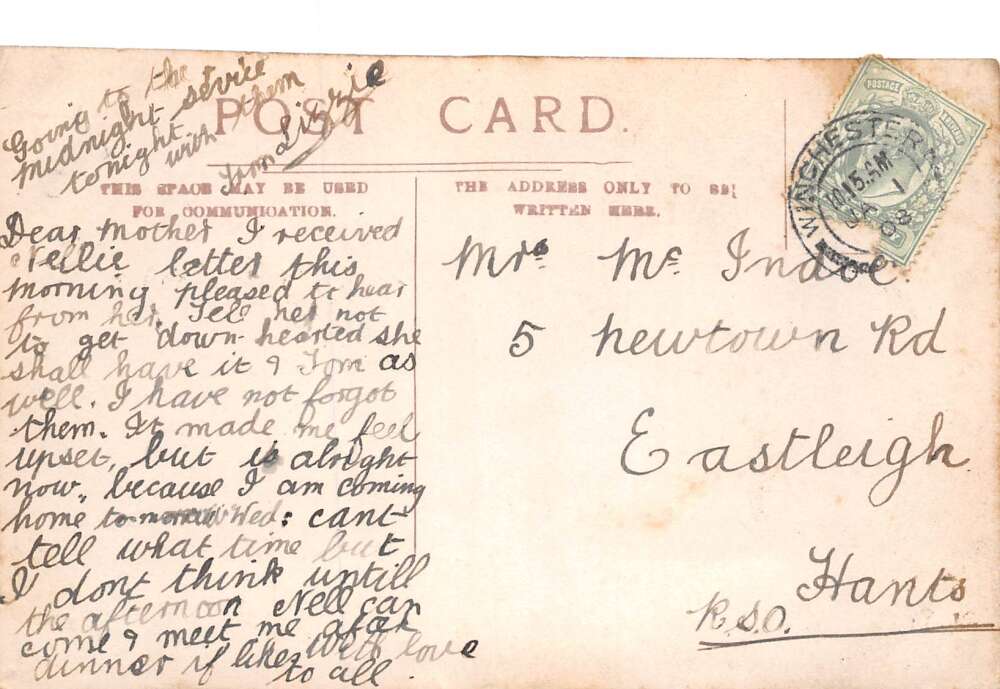 Going to the
midnight service
tonight with them
from Lizzie
POST CARD.
THIS SPACE MAY BE USED
FOR COMMUNICATION.
THE ADDRESS ONLY TO BE
WRITTEN HERE.
Dear Mother I received
Nellie letter this
morning pleased to hear
from her. Tell her not
to get down-hearted she
shall have it & Tom as
well. I have not forgot
them. It made me feel
upset, but is alright
now, because I am coming
home to-morrow Wed: cant
tell what time but
I dont think untill
the afternoon Nell can
come & meet me after
dinner if likes With love
to all.
Mrs Mc Indoe
5 Newtown Rd
Eastleigh
Hants
R.S.O.
POSTAGE
WINCHESTER
10.15 AM